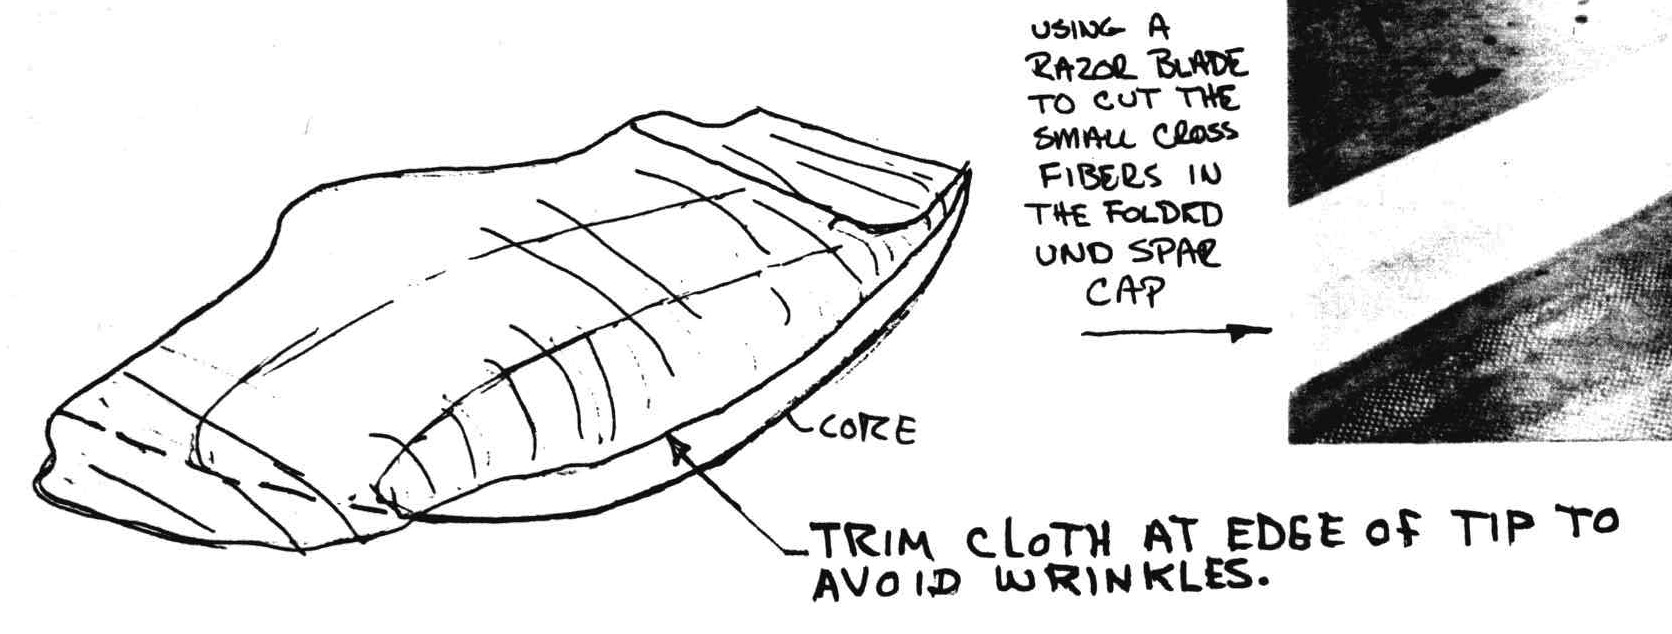 USING A
RAZOR BLADE
TO CUT THE
SMALL CROSS
FIBERS IN
THE FOLDED
UND SPAR
CAP
CORE
TRIM CLOTH AT EDGE OF TIP TO
AVOID WRINKLES.